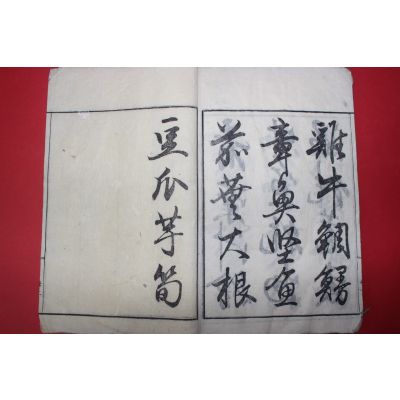 雞牛鯛鰹
章魚堅魚
蕪菁大根
豆瓜芋筍